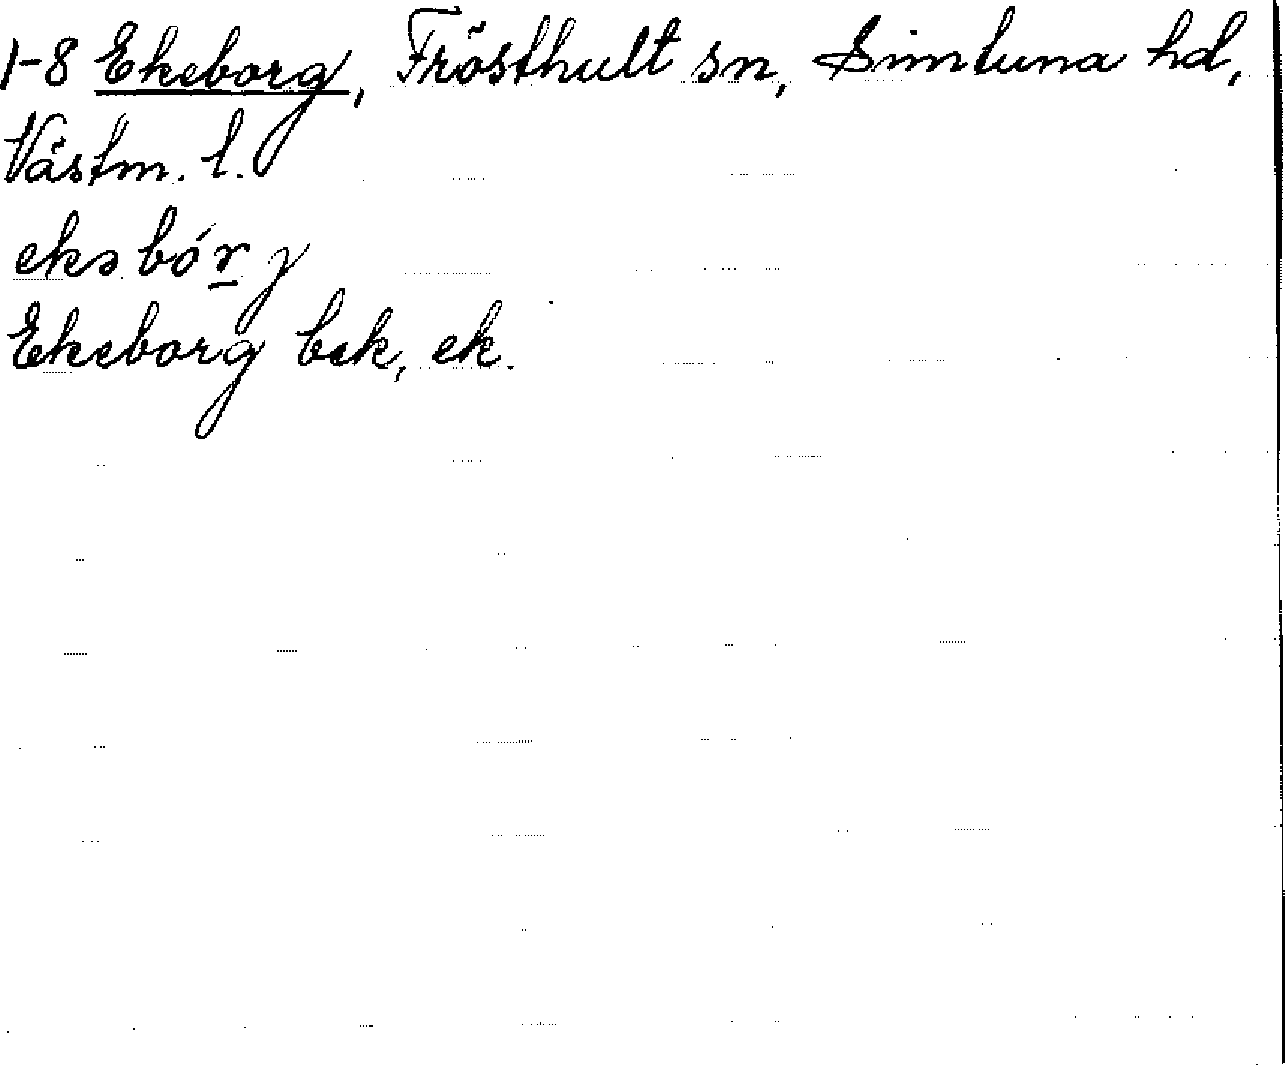 1-8 Ekeborg, Frösthult sn, Simtuna hd,
Västm. l.
ekə bór y
Ekeborg bek, ek.